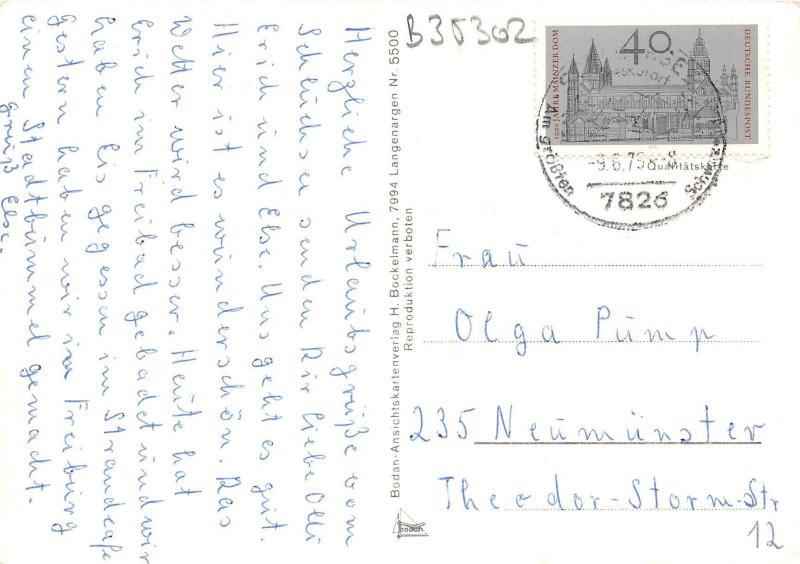 Herzliche Urlaubsgrüße vom
Schluchsee senden Dir liebe Olli
Erich und Else. Uns geht es gut.
Hier ist es wunderschön. Das
Wetter wird besser. Heute hat
Erich im Freibad gebadet und wir
haben Eis gegessen im Strandcafe
Gestern haben wir in Freiburg
einen Stadtbummel gemacht.
gruß Else.
B35302
Bodan-Ansichtskartenverlag H. Bockelmann, 7994 Langenargen Nr. 5500
Reproduktion verboten
bodan
1000 JAHRE MAINZER DOM
40
DEUTSCHE BUNDESPOST
1975
Am größten
-9.6.75-8
7826
Qualitätskarte
Frau
Olga Pump
235 Neumünster
Theodor-Storm-Str
12